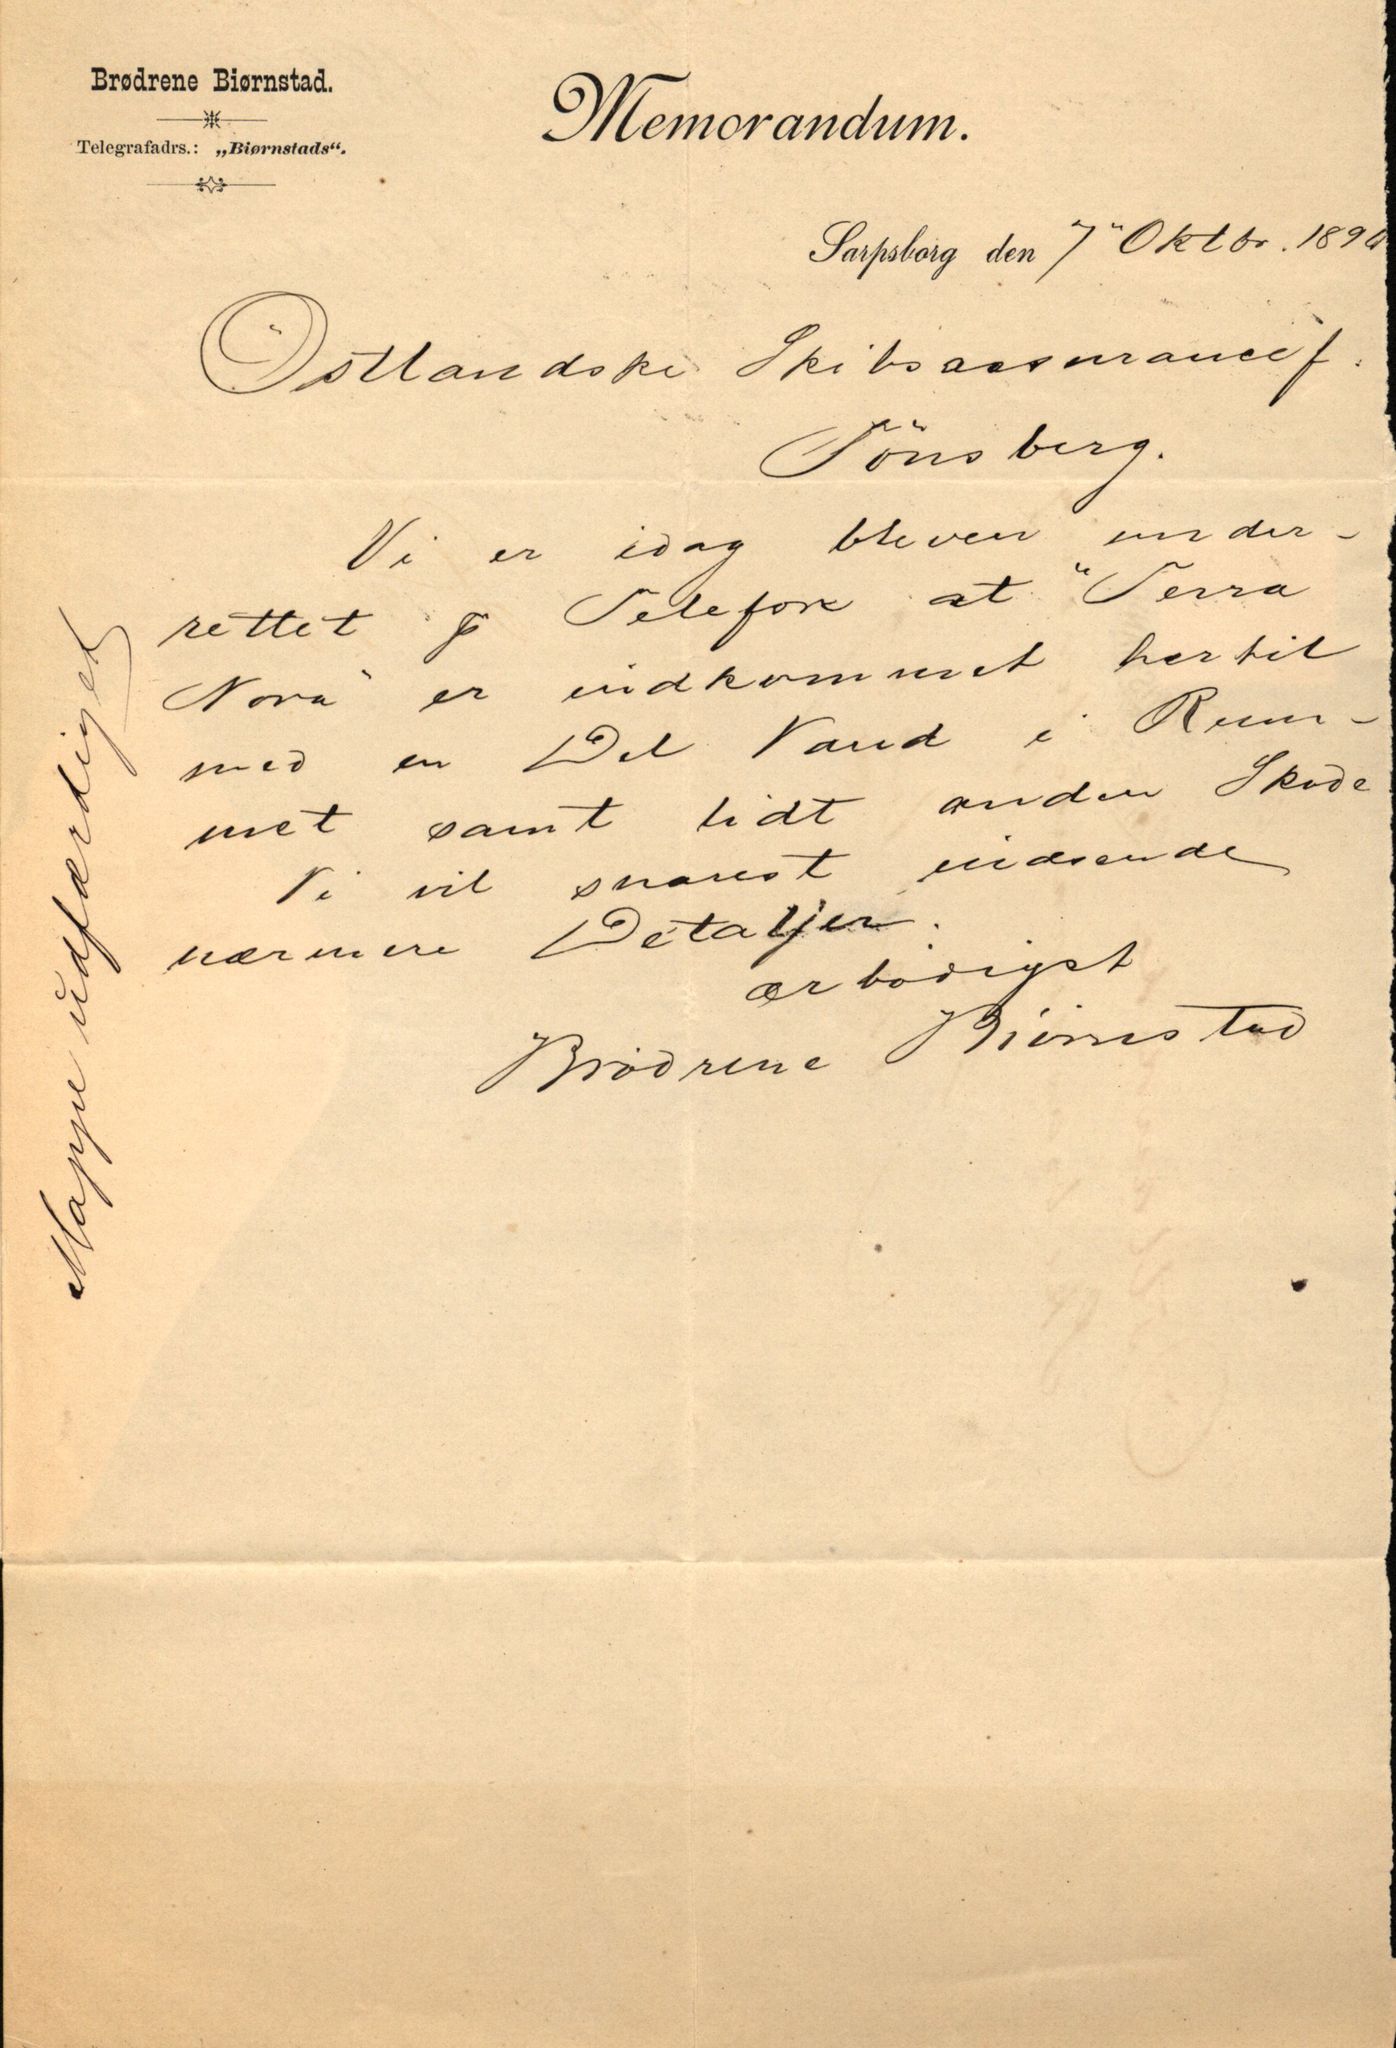 Brødrene Biørnstad.
Telegrafadrs.: „Biørnstads“.
Memorandum.
Sarpsborg den 7" Oktbr. 1890
Östlandske Skibsassurancef.
Tönsberg.
Vi er idag bleven under-
rettet pr Telefon at "Terra
Nova" er indkommet hertil
med en Del Vand i Rum-
met samt lidt anden Skade
Vi vil snarest indsende
nærmere Detaljer.
ærbödigst
Brödrene Biörnstad
Mappe udfærdiget